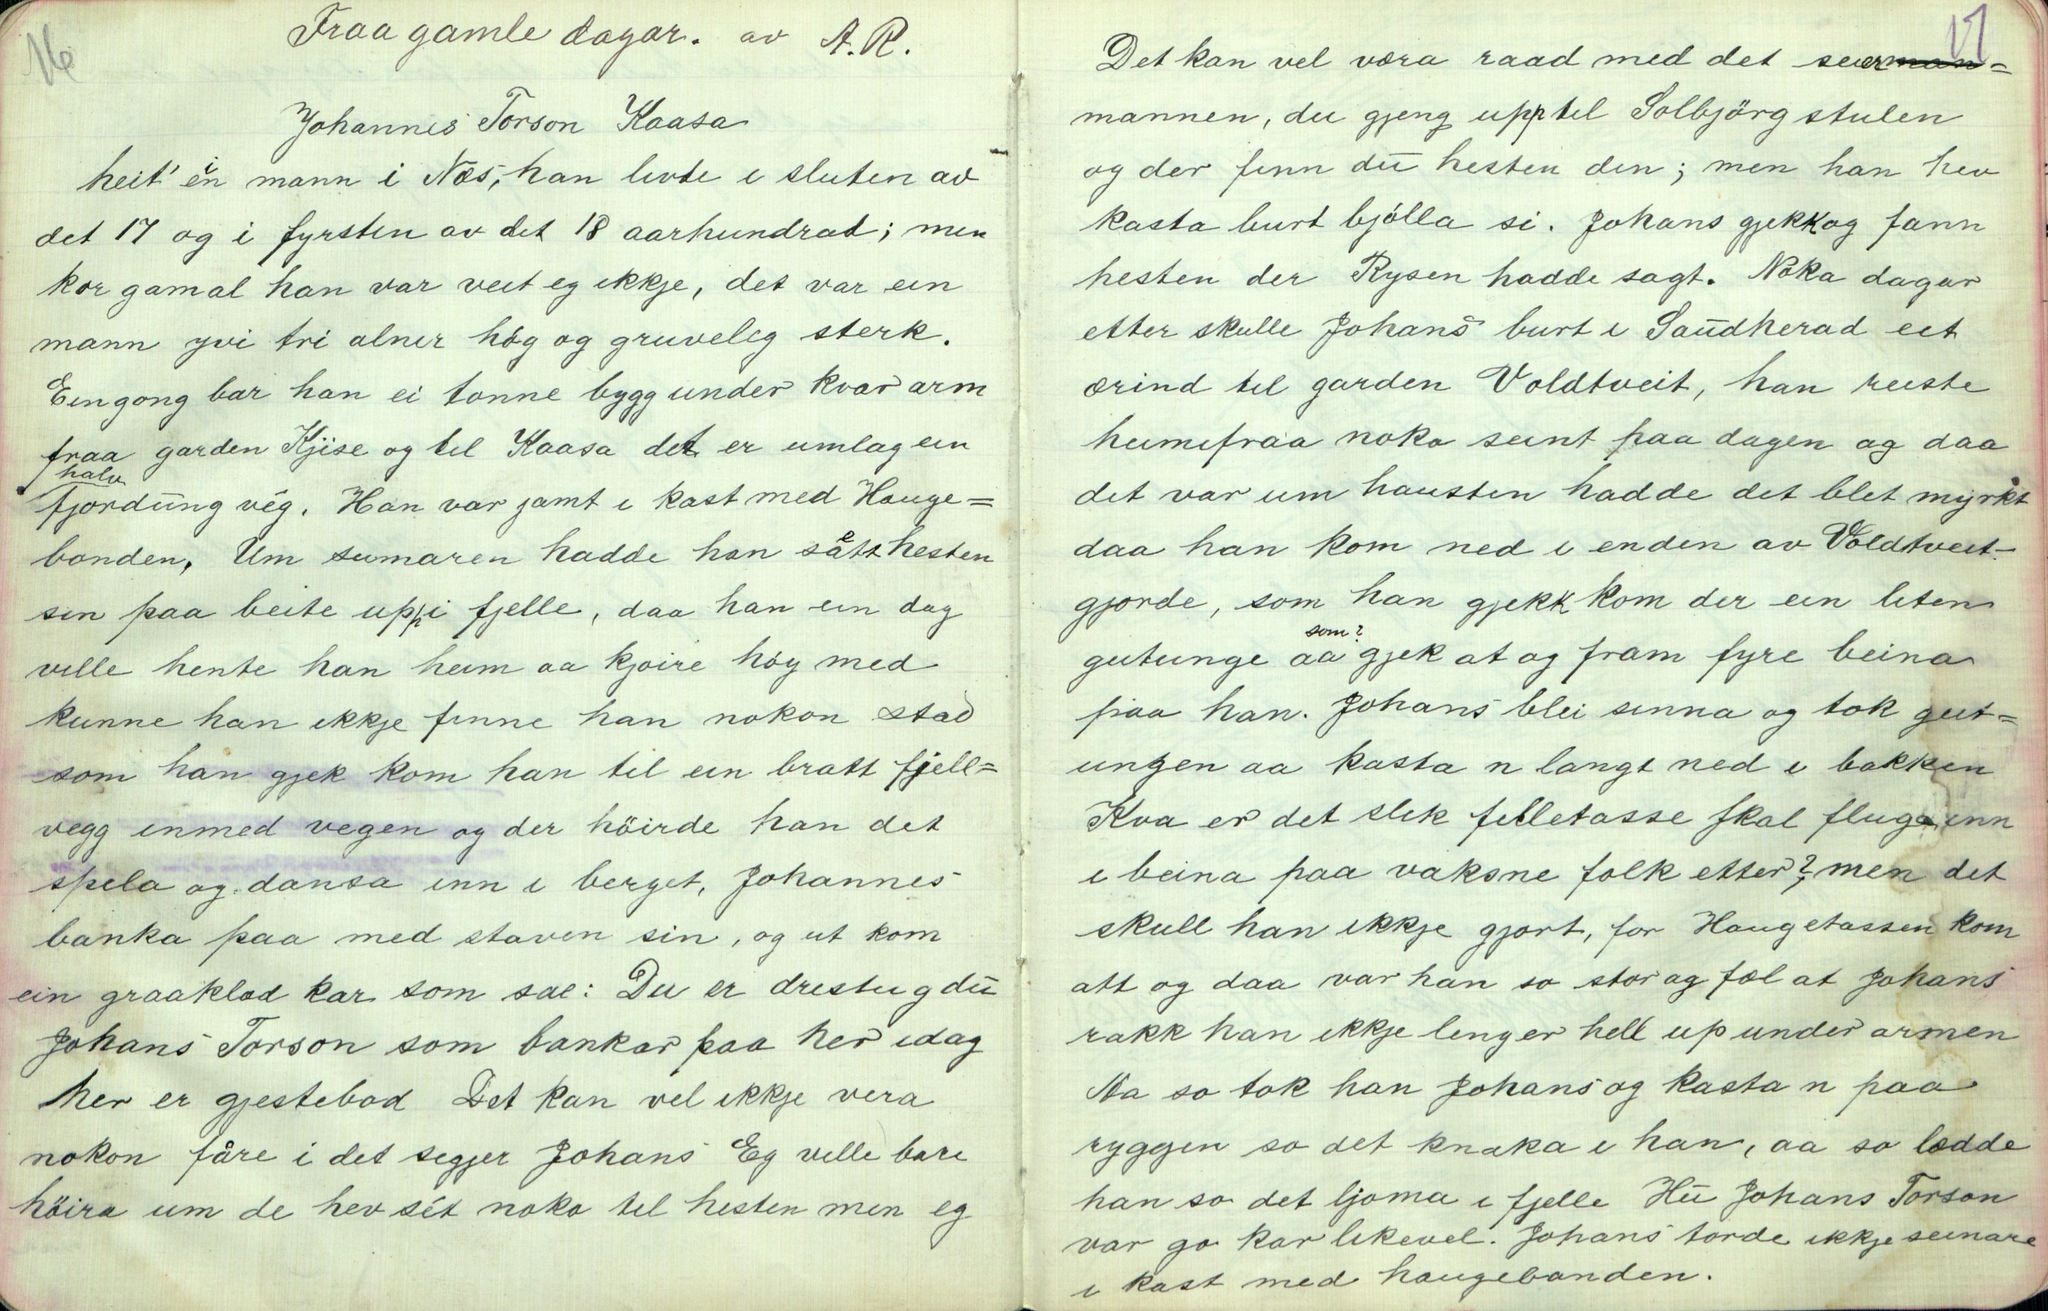 16
Fraa gamle dagar. av A. R.
Johannes Torson Kaasa
heit' ein mann i Næs, han livde i sluten av
det 17 og i fyrsten av det 18 aarhundrad; men
kor gamal han var veit eg ikkje, det var ein
mann yvi tri alner høg og gruveleg sterk.
Eingong bar han ei tonne bygg under kvar arm
fraa garden Kjise og til Kaasa det er umlag ein
halv
fjordŭng vég. Han var jamt i kast med Hauge=
bonden, Um sumaren hadde han sätt hesten
sin paa beite uppi fjelle, daa han ein dag
ville hente han heim aa kjøire høy med
kunne han ikkje finne han nokon stad
som han gjek kom han til ein bratt fjell=
vegg inmed vegen og der höirde han det
spela og dansa inn i berget, Johannes
banka paa med staven sin, og ut kom
ein graaklæd kar som sae: Du er dresteug dŭ
Johans Torson som bankar paa her idag
her er gjestebod Det kan vel ikkje vera
nokon fåre i det segjer Johans Eg ville bare
höira um de hev sét noko til hesten min eg
17
Det kan vel væra raad med det seierman=
mannen, du gjeng upp til Solbjörg stulen
og der finn dŭ hesten din; men han hev
kasta burt bjölla si. Johans gjekk og fann
hesten der Rysen hadde sagt. Noka dagar
etter skulle Johans burt i Saŭdherad eit
ærind til garden Voldtveit, han reiste
heimefraa noko seint paa dagen og daa
det var um hausten hadde det blet myrkt
daa han kom ned i enden av Voldtveit-
gjorde, som han gjekk kom der ein liten
som?
gutunge aa gjek at og fram fyre beina
paa han. Johans blei sinna og tok gut=
ungen aa kasta n langt ned i bakken
Kva er det slik filletasse skal fluga inn
i beina paa vaksne folk etter?, men det
skull han ikkje gjort, for Haugetassen kom
att og daa var han so stor og fæl at Johans
rakk han ikkje lenger hell up under armen
Na so tok han Johans og kasta n paa
ryggen so det knaka i han, aa so lædde
han so det ljoma i fjelle Hŭ Johans Torson
var go kar likevel. Johans torde ikkje seinare
i kast med haugebonden.